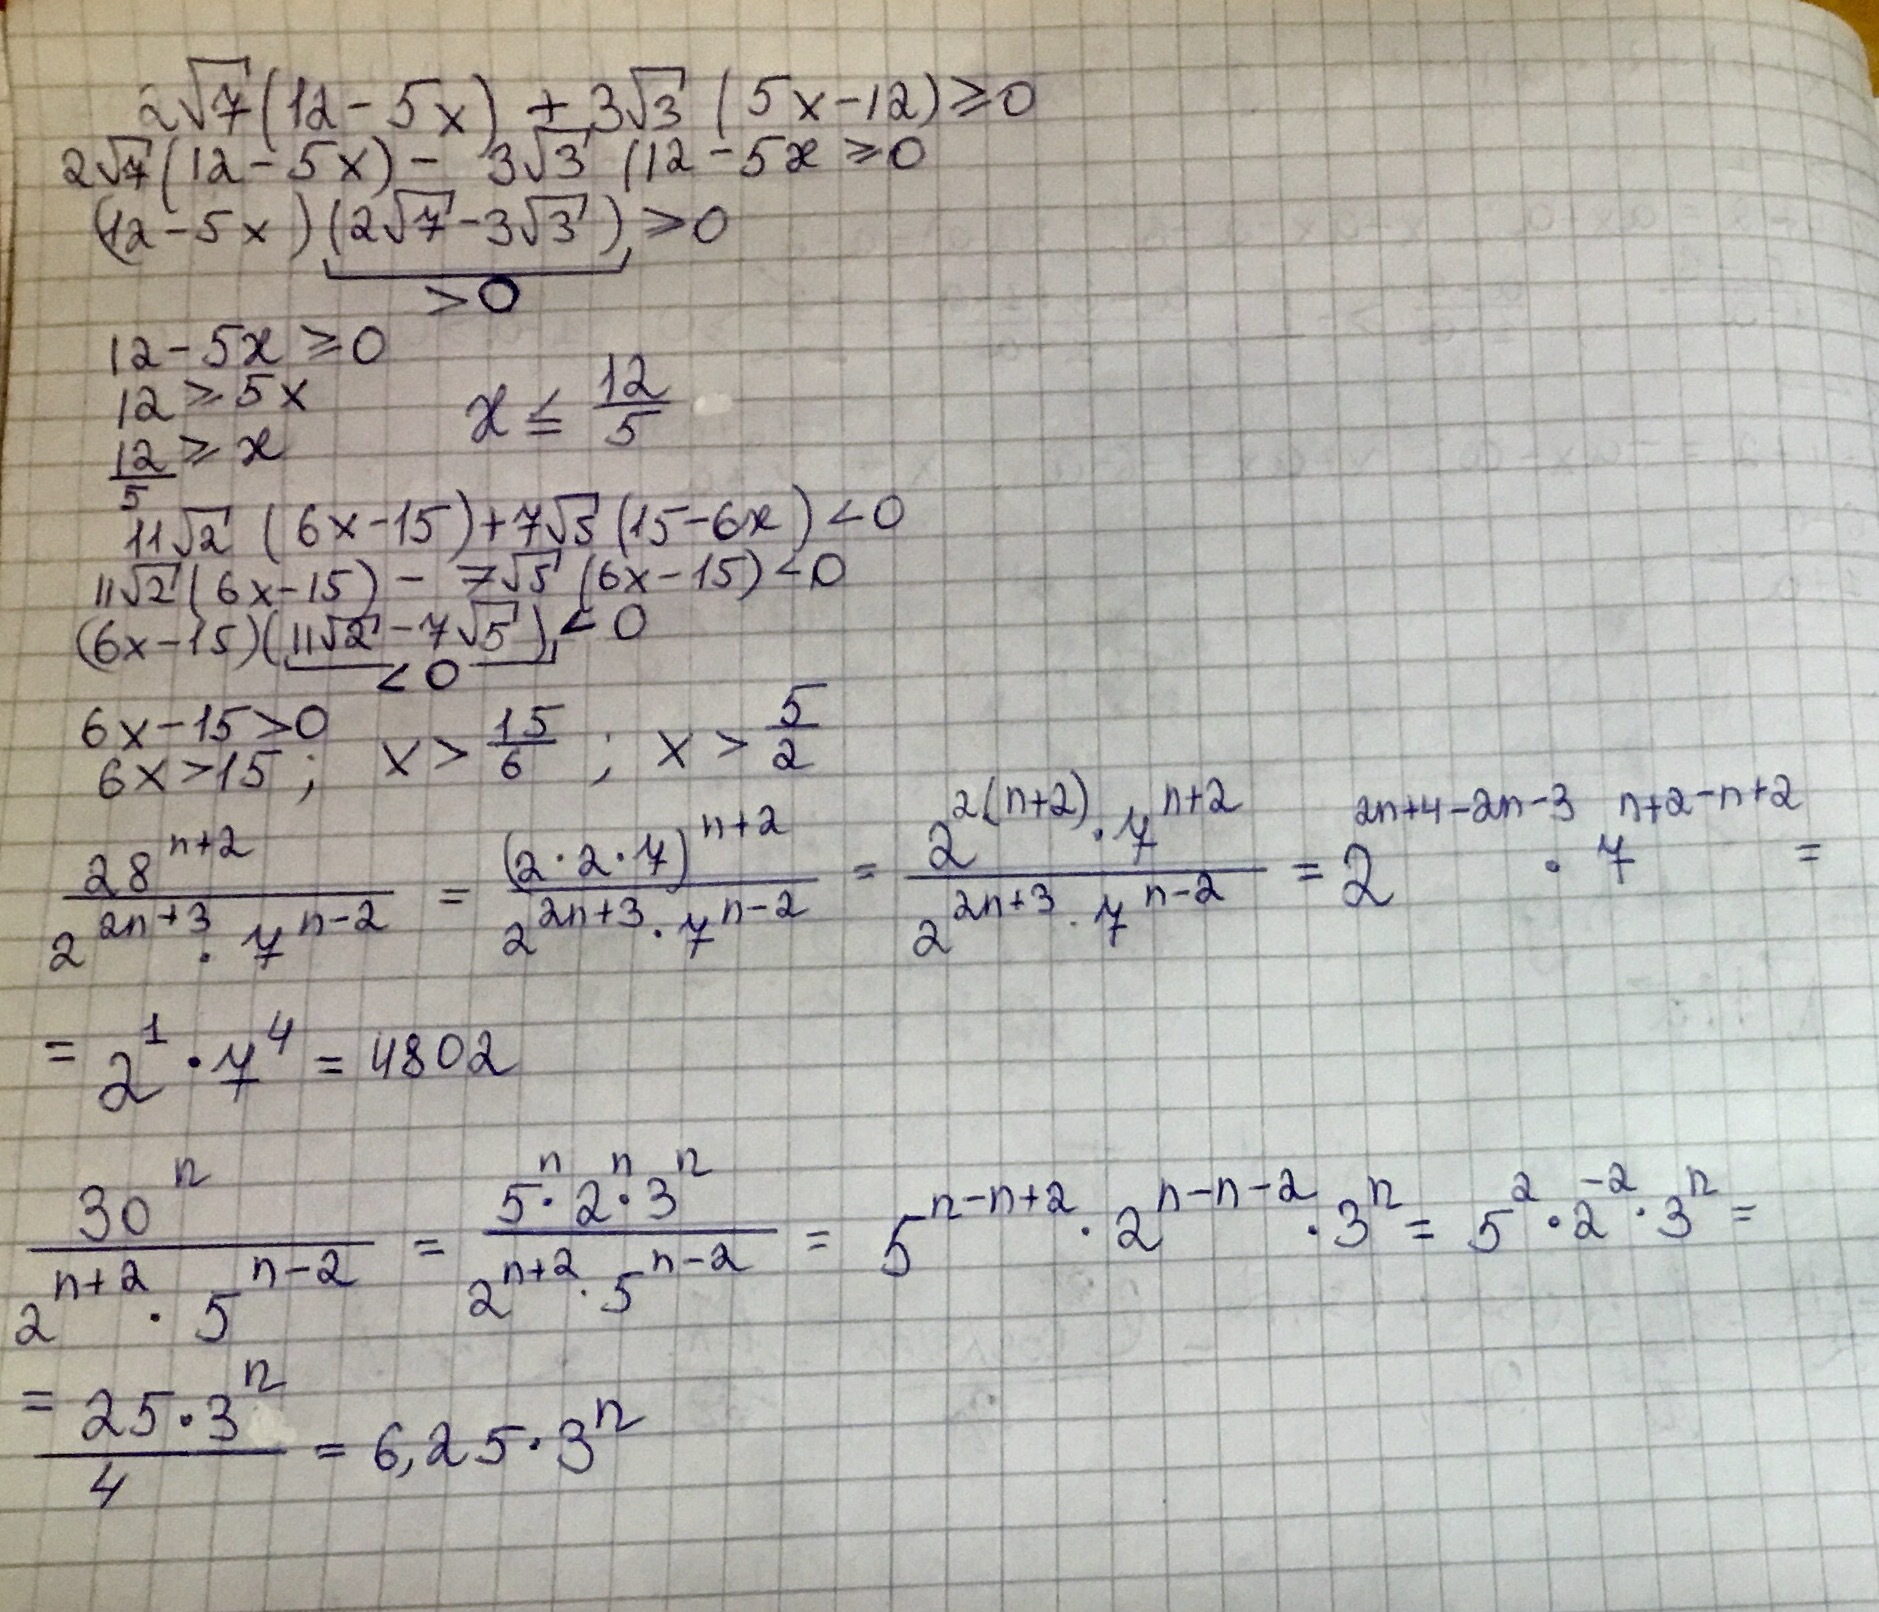 2√7(12-5x) + 3√3 (5x-12)≥0
2√7(12-5x) - 3√3 (12-5x ≥0
(12-5x)(2√7-3√3) ≥0
>0
12-5x≥0
12≥5x
12/5 ≥ x x ≤ 12/5
11√2 (6x-15)+7√5(15-6x)<0
11√2(6x-15) - 7√5 (6x-15)<0
(6x-15)(11√2-7√5)<0
<0
6x-15>0
6x>15; x > 15/6 ; x > 5/2
28^(n+2) / (2^(2n+3) · 7^(n-2)) = (2·2·7)^(n+2) / (2^(2n+3) · 7^(n-2)) = (2^(2(n+2)) · 7^(n+2)) / (2^(2n+3) · 7^(n-2)) = 2^(2n+4-2n-3) · 7^(n+2-n+2) =
= 2^1 · 7^4 = 4802
30^n / (2^(n+2) · 5^(n-2)) = (5^n · 2^n · 3^n) / (2^(n+2) · 5^(n-2)) = 5^(n-n+2) · 2^(n-n-2) · 3^n = 5^2 · 2^(-2) · 3^n =
= (25·3^n) / 4 = 6,25·3^n